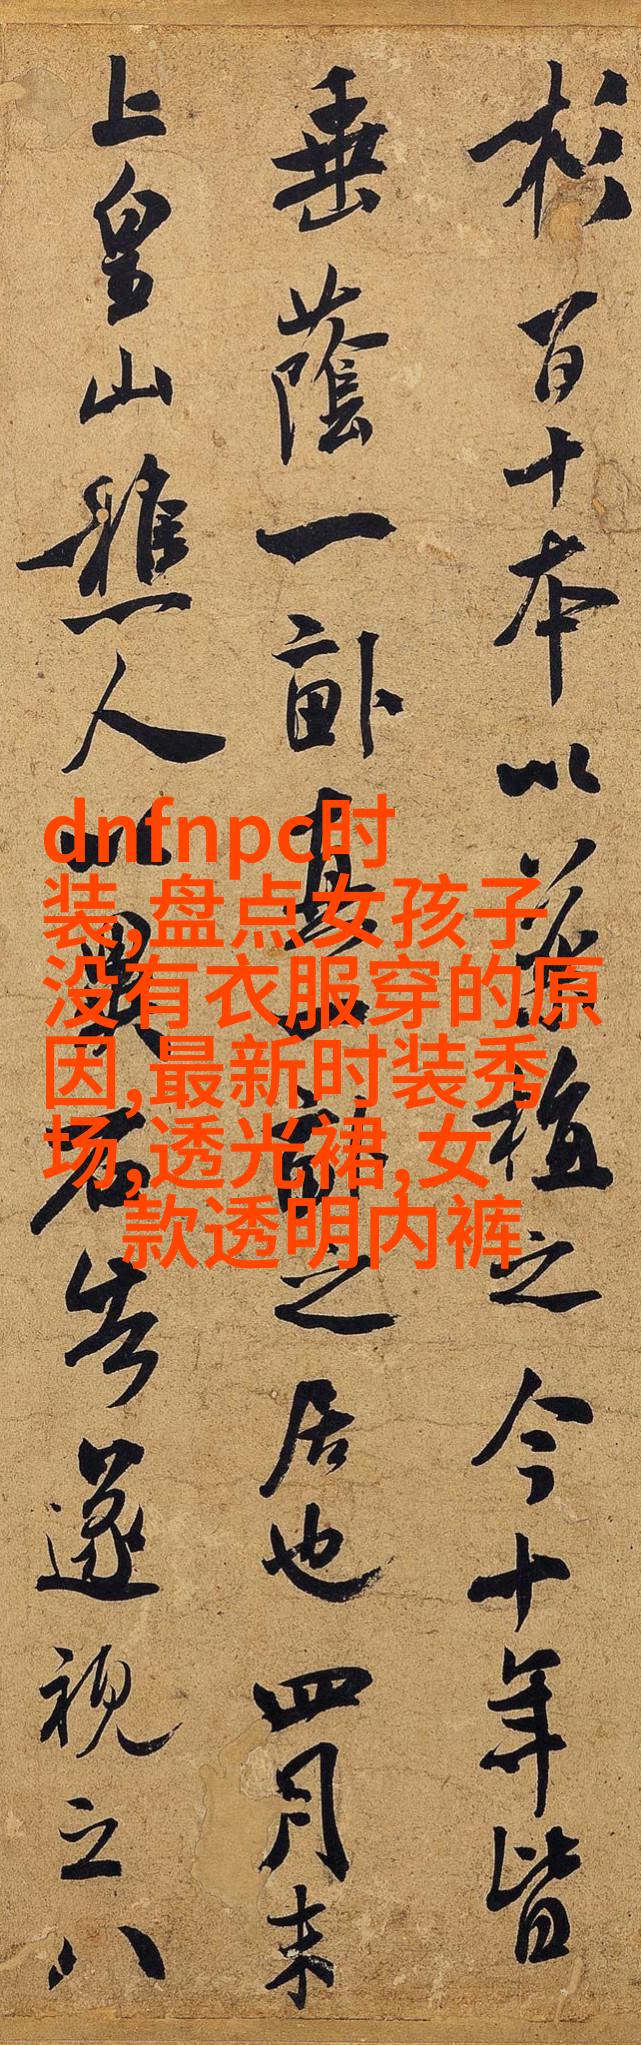 杉百十本以植之今十年皆
垂蔭一畝真之居也四月末
上皇山樵人以異石告遂視之八
dnfnpc时
装,盘点女孩子
没有衣服穿的原
因,最新时装秀
场,透光裙,女
款透明内裤